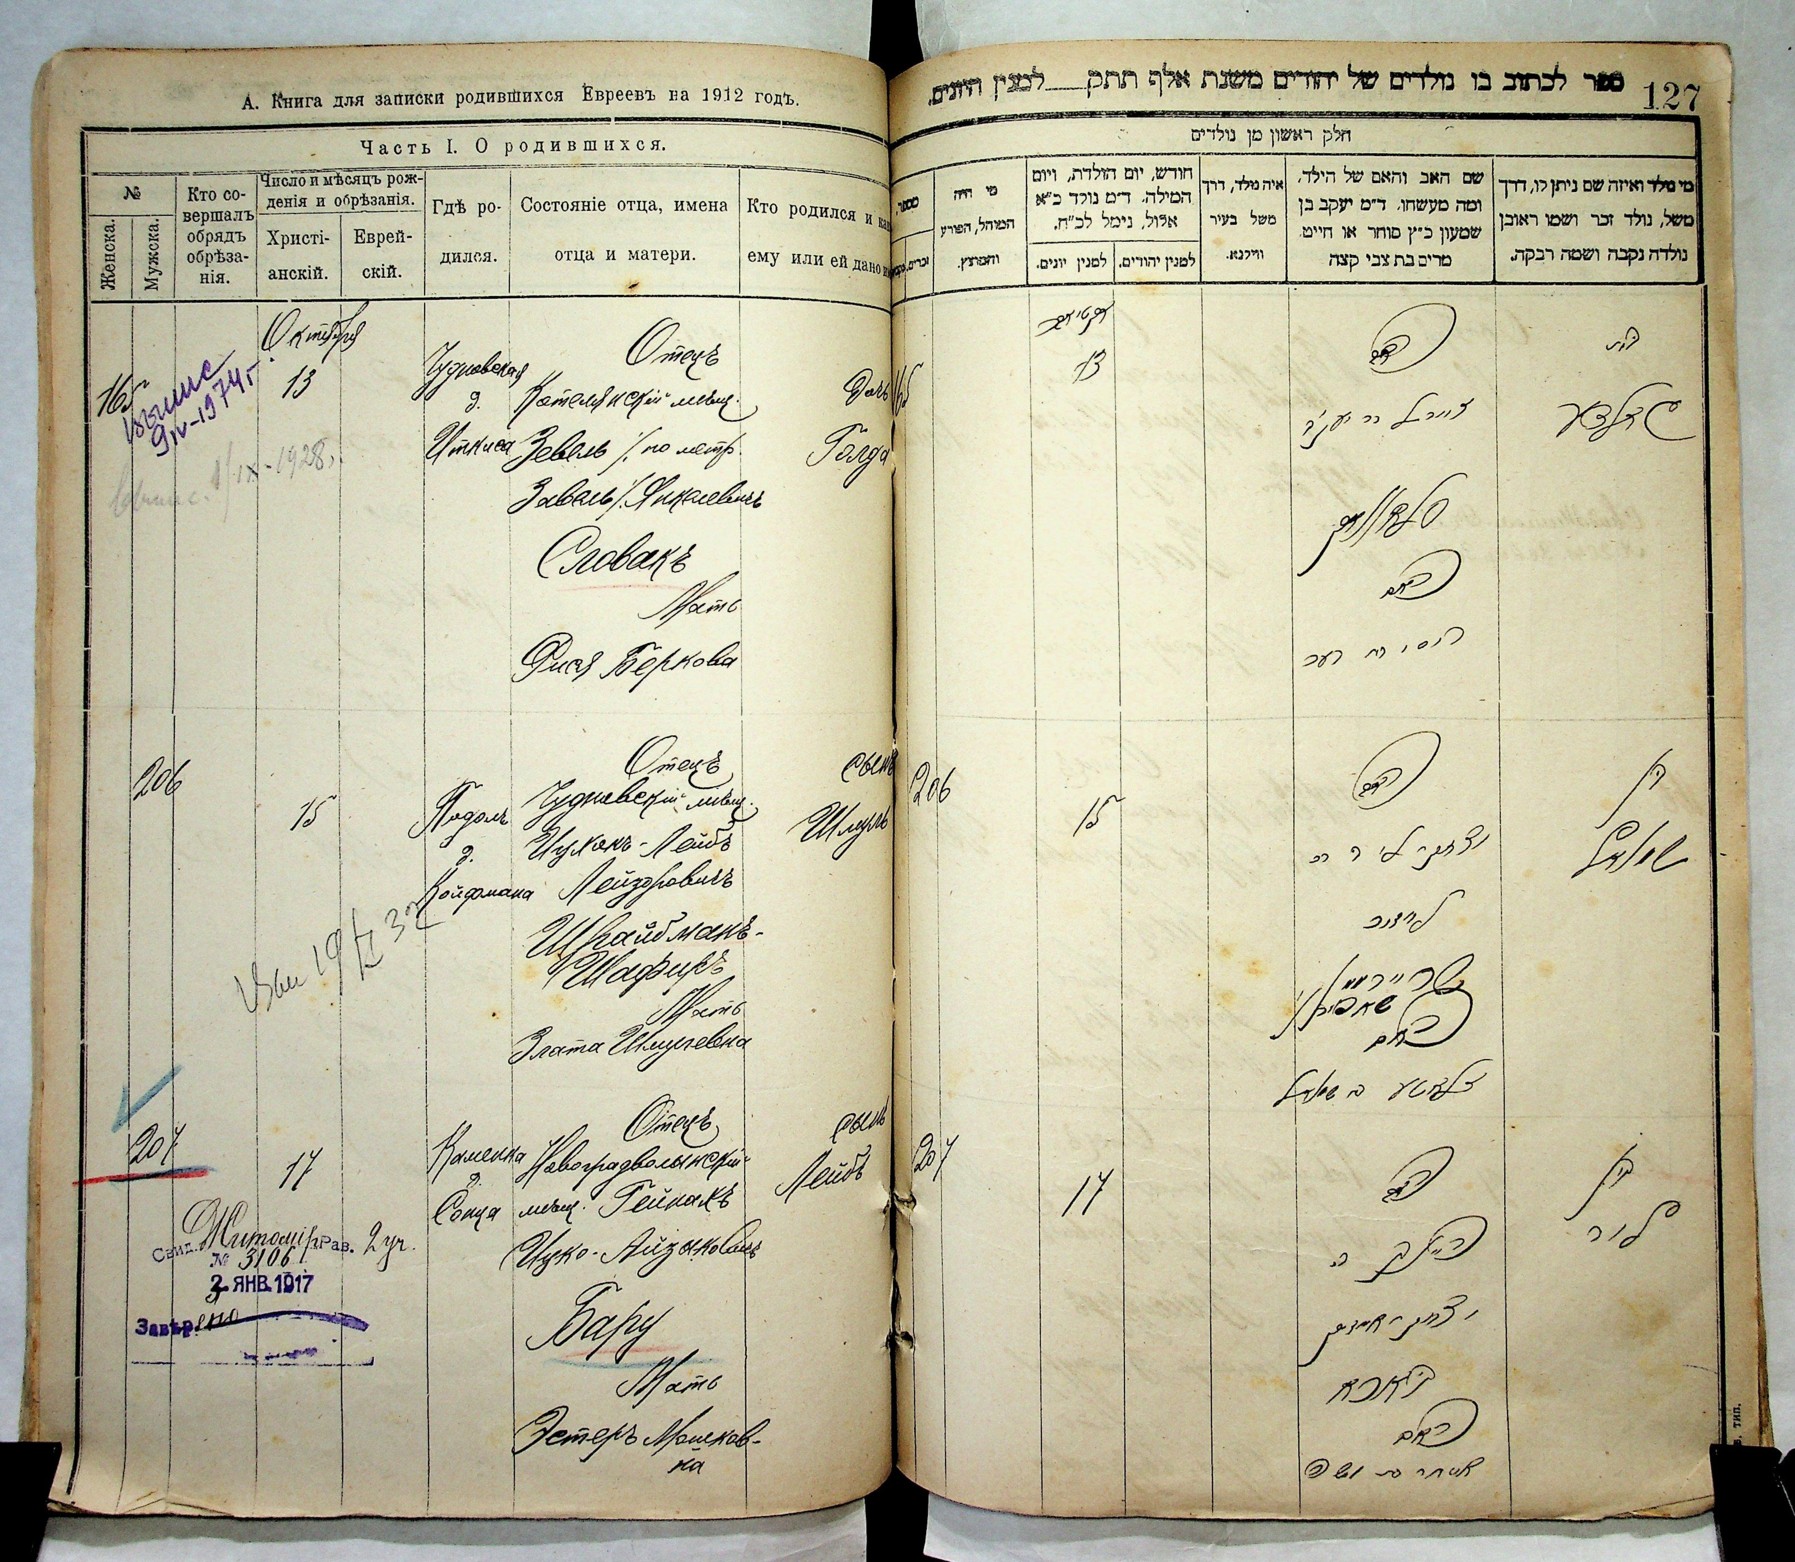 А. Книга для записки родившихся Евреевъ на 1912 годъ.
Часть I. О родившихся.
№
Женска.
Мужска.
Кто со-
вершалъ
обрядъ
обрѣза-
нія.
Число и мѣсяцъ рож-
денія и обрѣзанія.
Христі-
анскій.
Еврей-
скій.
Гдѣ ро-
дился.
Состояніе отца, имена
отца и матери.
Кто родился и как
ему или ей дано
Октября
165
13
Чудновская
д.
Иткиса
Отецъ
Котелянскій мѣщ.
Зевель /: по метр.
Заваль/: Янкелевичъ
Словакъ
Мать
Фися Беркова
Дочь
Голда
9 IV-1974 г.
IX-1928
206
15
Подоль
д.
Койфмана
Отецъ
Чудновскій мѣщ.
Ицхокъ-Лейбъ
Лейзоровичъ
Шрайбманъ-
Шафиръ
Мать
Злата Шмулевна
сынъ
Шмуль
207
17
Каменка
д.
Сонца
Отецъ
Новоградволынскій
мѣщ. Гейнахъ
Ицко-Айзиковичъ
Бару
Мать
Эстеръ Мошков-
на
сынъ
Лейбъ
Свид. Житомір. Рав. 2 уч.
№ 3106
2 ЯНВ. 1917
Завѣрено
127
ספר לכתוב בו נולדים של יהודים משנת אלף תתק למנין היונים.
חלק ראשון מן נולדים
מי נולד ואיזה שם ניתן לו, דרך
משל, נולד זכר ושמו ראובן
נולדה נקבה ושמה רבקה.
שם האב והאם של הילד,
ומה מעשהו. ד״מ יעקב בן
שמעון כ״ץ סוחר או חייט
מרים בת צבי קצה
איה נולד, דרך
משל בעיר
ווילנא.
חודש, יום הולדת, ויום
המילה. ד״מ נולד כ״א
אלול, נימל לכ״ח.
למנין יהודים.
למנין יונים.
מי היה
המוהל, הפורע
והמוצץ.
מספר
זכרים.
165
13
האב
גאלדע
סלאוואק
האם
206
15
האב
בן
שמואל
שרייבמאן
שאפיר
האם
זלאטע ב שמואל
207
17
האב
בן
ליב
יצחק-אייזיק
בארו
האם